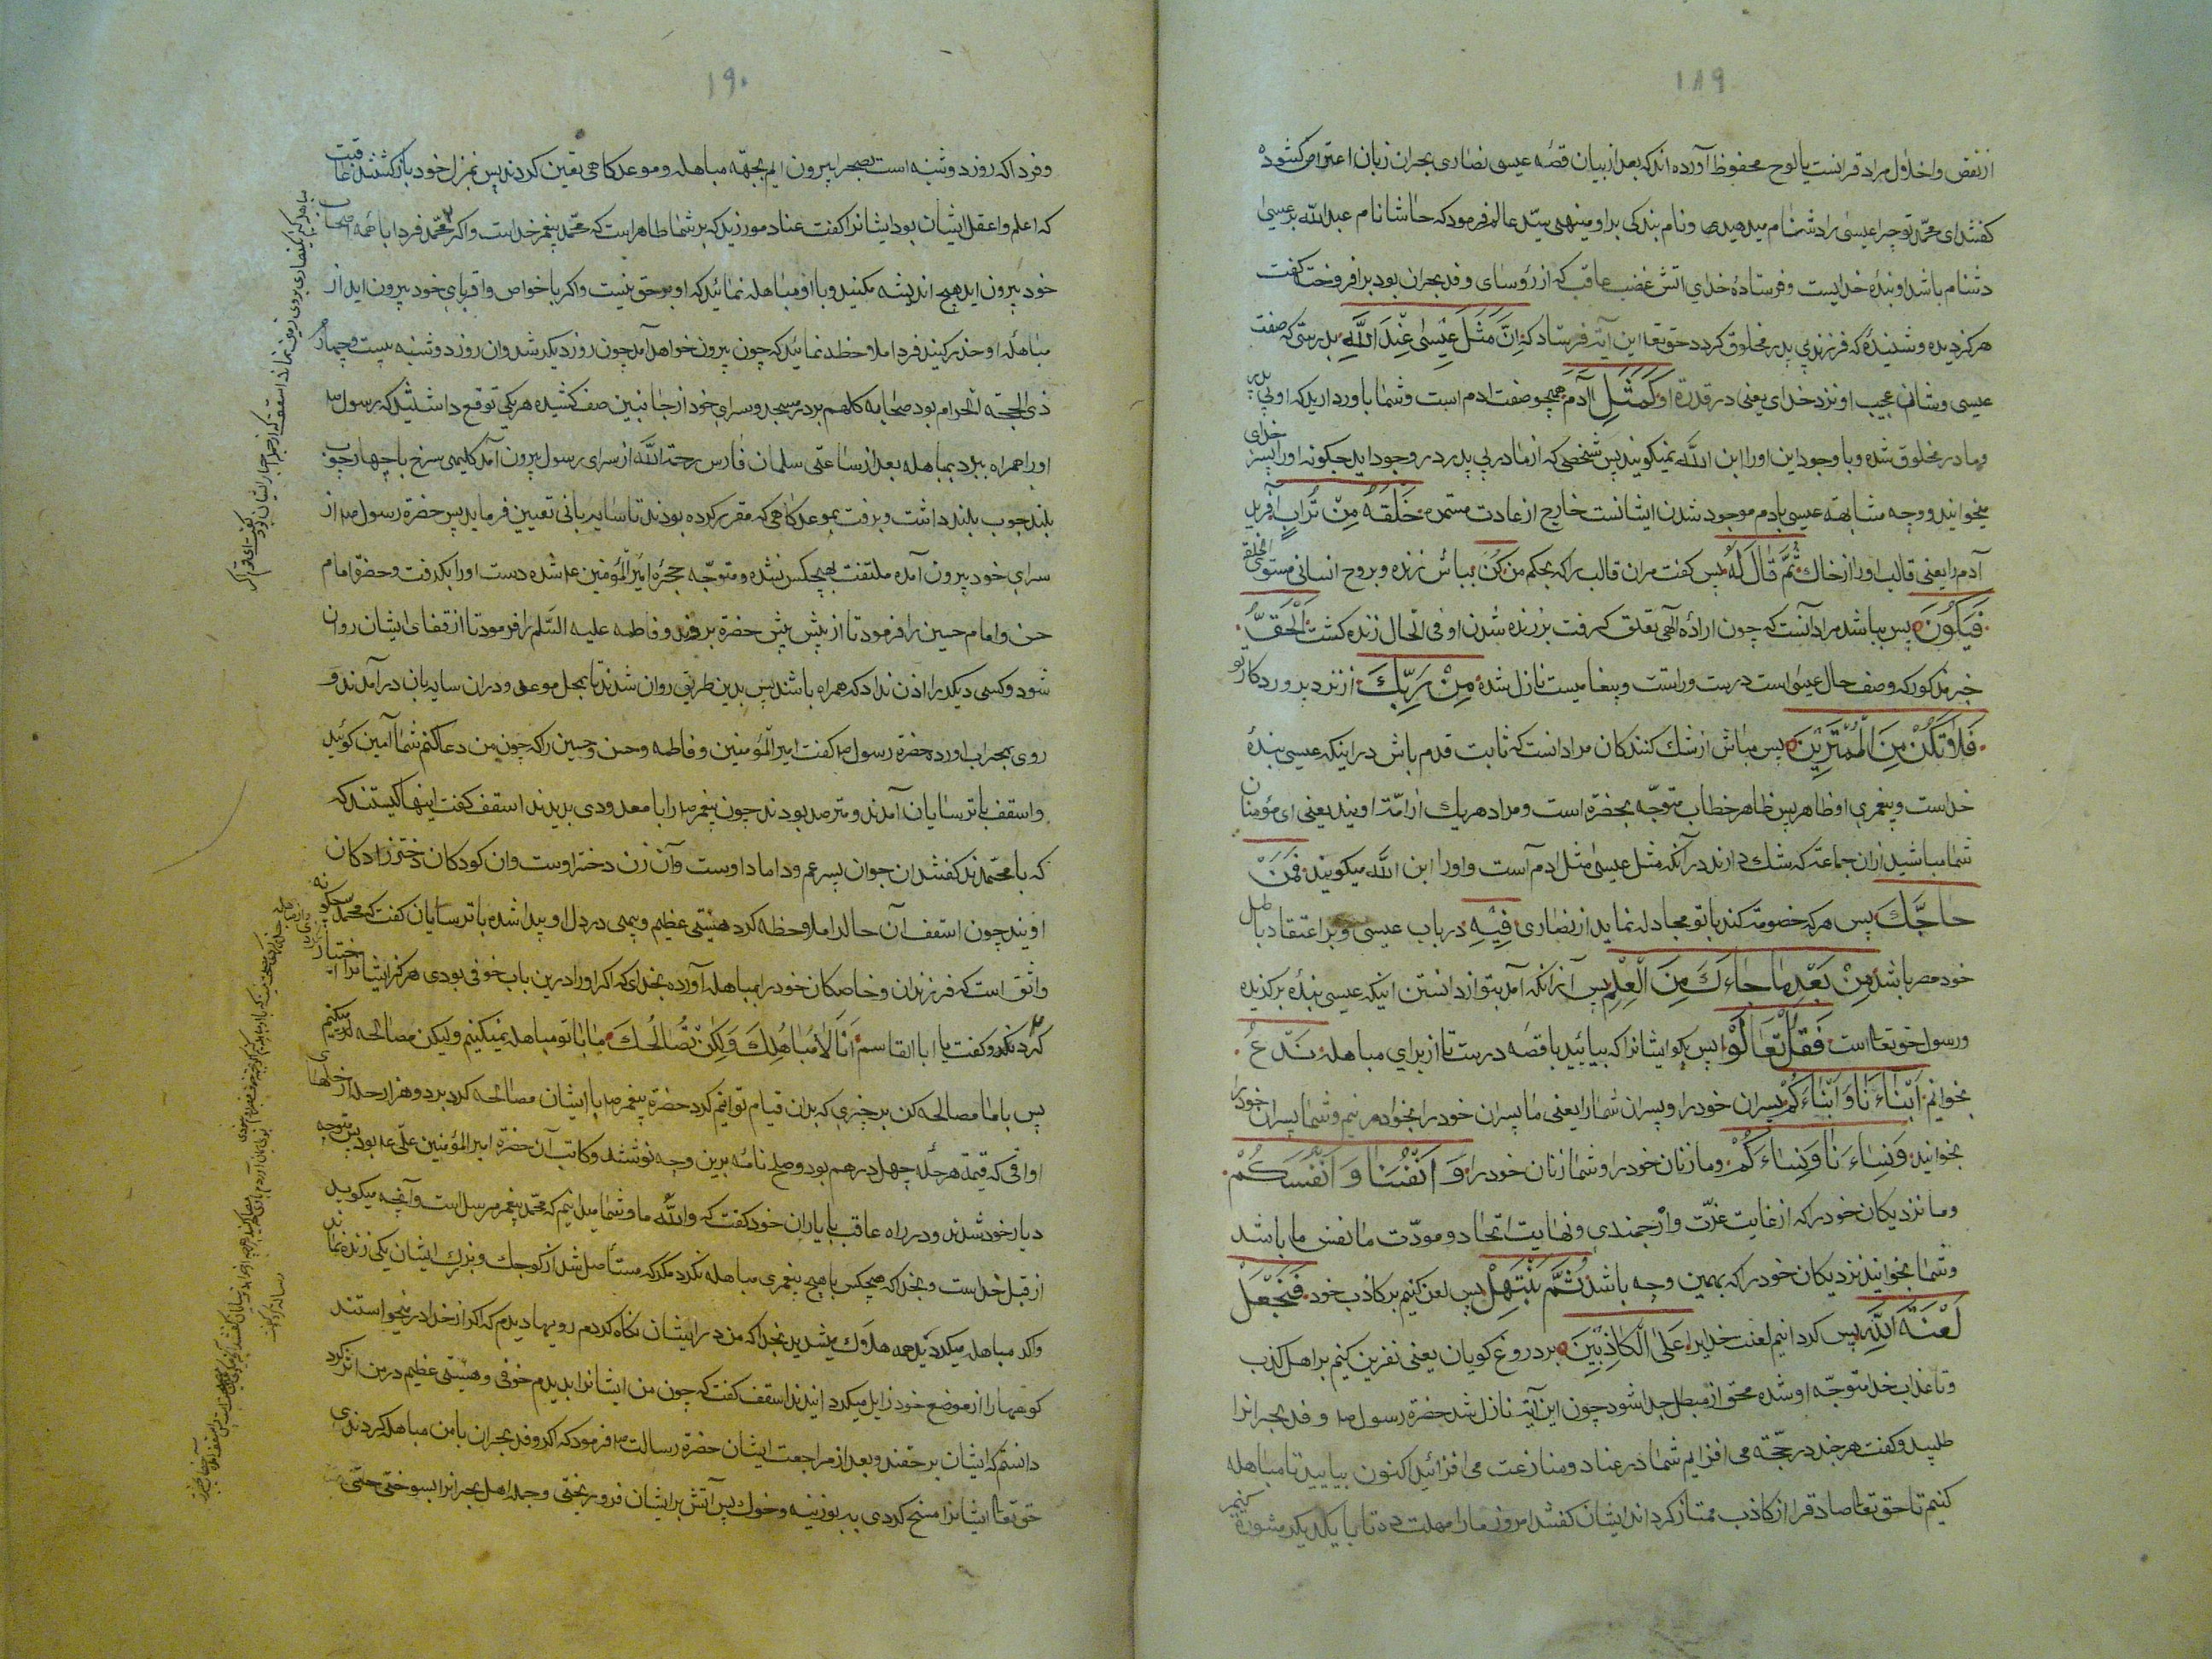 ۱۸۹
از نقص واخلال مراد قرانست یا لوح محفوظ آورده اند که بعد از بیان قصّه عیسی نصاری نجران زبان اعتراض کشوده
کفتند ای محمّد تو چرا عیسی را دشنام میدهی و نام بندکی براو مینهی سیّد عالم فرمود که حاشا نام عبدالله بر عیسی
دشنام باشد او بندهٔ خدایست و فرستادهٔ خدای اتش غضب عاقب که از رؤسای وفد نجران بود بر افروخت کفت
هرکز دیده و شنیدهٔ که فرزند بی پدر مخلوق کردد حقتعا این آیه فرستاد که اِنَّ مَثَلَ عِیْسٰی عِنْدَ اللّٰهِ بدرستی که صفت
عیسی وشان عجیب او نزد خدای یعنی در قدرة او کَمَثَلِ اٰدَمَ همچو صفت ادم است وشما باور دارید که او بی پدر
ومادر مخلوق شده و با وجود این اورا ابن اللّه نمیکویند پس شخصی که از مادر بی پدر در وجود اید چکونه اورا پسر خدای
میخوانید و وجه مشابهة عیسی بادم موجود شدن ایشانست خارج از عادت مستمره خَلَقَهُ مِنْ تُرَابٍ آفرید
آدم را یعنی قالب اورا از خاك ثُمَّ قَالَ لَهُ پس کفت مران قالب را که بحکم من کُنْ بباش زنده و بروح انسانی مستوی الخلقه
فَیَکُوْنُ پس بباشد مراد آنست که چون ارادهٔ الهی تعلق کرفت بر زنده شدن او فی الحال زنده کشت اَلْحَقُّ
خبر مذکور که وصف حال عیسی است درست وراست و پیغامیست نازل شده مِنْ رَبِّكَ از نزد پروردکار تو
فَلَا تَکُنْ مِنَ الْمُمْتَرِیْنَ پس مباش از شك کنندکان مراد انست که ثابت قدم باش در اینکه عیسی بندهٔ
خداست و پیغمبری او ظاهر پس ظاهر خطاب متوجّه بحضرة است ومراد هریك از امّة اویند یعنی ای مؤمنان
شما مباشید ازان جماعة که شك دارند در آنکه مثل عیسی مثل ادم آست واورا ابن اللّه میکویند فَمَنْ
حَاجَّكَ پس هرکه خصومة کند با تو ومجادله نماید از نصاری فِیْهِ در باب عیسی وبر اعتقاد باطل
خود مصر باشد مِنْ بَعْدِ مَا جَاءَكَ مِنَ الْعِلْمِ پس آز انکه آمد بتو از دانستن اینکه عیسی بندهٔ برکزیده
ورسول حقتعا است فَقُلْ تَعَالَوْا پس بکو ایشانرا که بیائید با قصد درست تا از برای مباهله نَدْعُ
بخوانیم اَبْنَاءَنَا وَاَبْنَاءَکُمْ پسران خود را وپسران شما را یعنی ما پسران خود را بخوانیم وشما پسران خود را
بخوانید وَنِسَاءَنَا وَنِسَاءَکُمْ وما زنان خود را وشما زنان خود را وَ اَنْفُسَنَا وَ اَنْفُسَکُمْ
وما نزدیکان خود را که از غایت عزّت وارجمندی ونهایت اتحاد ومودّت ما نفس ما باشد
وشما بخوانید نزدیکان خود را که بهمین وجه باشد ثُمَّ نَبْتَهِلْ پس لعن کنیم بر کاذب خود فَنَجْعَلْ
لَعْنَةَ اللّٰهِ پس کردانیم لعنت خدایرا عَلَی الْکَاذِبِیْنَ بر دروغ کویان یعنی نفرین کنیم بر اهل کذب
وتا عذاب خدا متوجّه او شده محق از مبطل جدا شود چون این آیة نازل شد حضرة رسول ص وفد نجرانرا
طلبید وکفت هر چند در حجّة می افزایم شما در عناد و منازعت می افزائید اکنون بیایید تا مباهله
کنیم تا حق تعا صادقرا از کاذب ممتاز کرداند ایشان کفتند امروز مارا مهلت ده تا با یکدیکر مشورة کنیم
۱۹۰
وفردا که روز دوشنبه است بصحرا بیرون ایم بجهة مباهله وموعد کاهی تعیین کردند پس بمنزل خود باز کشتند عاقبت
که اعلم واعقل ایشان بود ایشانرا کفت عناد مورزید که بر شما ظاهر است که محمّد پیغمبر خداست واکر محمّد فردا با همه اصحاب
خود بیرون اید هیچ اندیشه مکنید وبا او مباهله نمائید که او بر حق نیست واکر با خواص واقربای خود بیرون اید از
مباهلهٔ او حذر کنید فردا ملاحظه نمائید که چون بیرون خواهد آمد چون روز دیکر شد وان روز دوشنبه بیست وچهارم
ذی الحجّه الحرام بود صحابه کلهم بر در مسجد وسرای خود از جانبین صف کشیده هر یکی توقع داشتند که رسول ص
اورا همراه ببرد بمباهله بعد از ساعتی سلمان فارس رحمة اللّه از سرای رسول بیرون آمد کلیمی سرخ با چهار چوب
بلند چوب بلند داشت وبرفت بموعد کاهی که مقرر کرده بودند تا سایه بانی تعیین فرماید پس حضرة رسول ص از
سرای خود بیرون آمده ملتفت بهیچکس نشده ومتوجّه حجرهٔ امیر المؤمنین ع شده دست اورا بکرفت وحضرة امام
حسن وامام حسین را فرمود تا از پیش پیش حضرة بروند وفاطمه علیه السّلم را فرمود تا از قفای ایشان روان
شود وکسی دیکر را اذن نداد که همراه باشند پس بدین طریق روان شدند تا بمحل موعد ودران سایه بان در آمدند و
روی بمحراب اورد حضرة رسول ص کفت امیر المؤمنین وفاطمه وحسن وحسین را که چون من دعا کنم شما آمین کوئید
واسقف با ترسایان آمدند ومترصد بودند چون پیغمبر ص را با معدودی بدیدند اسقف کفت اینها کیستند که
که با محمّدند کفتند ان جوان پسر عم وداماد اوست وآن زن دختر اوست وان کودکان دختر زادکان
اویند چون اسقف آن حال را ملاحظه کرد هیبتی عظیم وبیمی در دل او پیدا شده با ترسایان کفت که محمد
واثق است که فرزندان وخاصکان خود را بمباهله آورده بخدای که اکر اورا درین باب خوفی بودی هرکز ایشانرا اختیار
نکردی وکفت یا ابا القاسم اَنَا لَا مُبَاهِلُكَ وَلٰکِنْ نُصَالِحُكَ ما با تو مباهله نمیکنیم ولیکن مصالحه میکنیم
پس با ما مصالحه کن بر چیزی که بدان قیام توانیم کرد حضرة پیغمبر ص با ایشان مصالحه کرد بر دو هزار حله از حلهای
اواقی که قیمة هر حلّه چهل درهم بود وصلح نامه برین وجه نوشتند وکاتب آن حضرة امیر المؤمنین علی ع بود پس متوجه
دیار خود شدند ودر راه عاقب با یاران خود کفت که واللّه ما وشما میدانیم که محمّد پیغمبر مرسل است وآنچه میکوید
از قبل خداست وبخدا که هیچکس با هیچ پیغمبری مباهله نکرد مکر که مستأصل شد از کوچك وبزرك ایشان یکی زنده نماند
واکر مباهله میکردید همه هلاك میشدید بخدا که من در ایشان نکاه کردم رویها دیدم که اکر از خدا درمیخواستند
کوهها را از موضع خود زایل میکردانیدند اسقف کفت که چون من ایشانرا بدیدم خوفی وهیبتی عظیم در من اثر کرد
دانستم که ایشان بر حقند وبعد از مراجعت ایشان حضرة رسالت ص فرمود که اکر وفد نجران با من مباهله کردندی
حق تعا ایشانرا مسخ کردی به بوزینه وخوك پس آتش بر ایشان فرو ریختی وجمله اهل نجرانرا بسوختی حتی